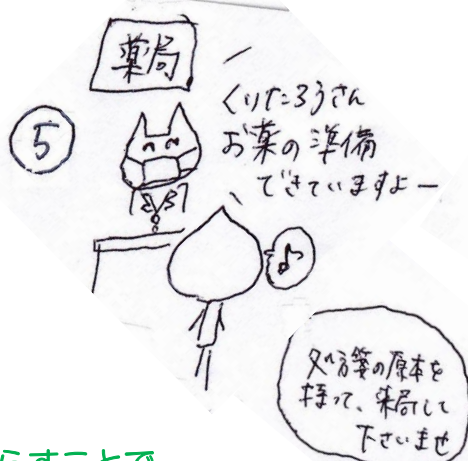 薬局
⑤
くりたろうさん
お薬の準備
できていますよー
♪
処方箋の原本を
持って、来局して
下さいませ
らすことで